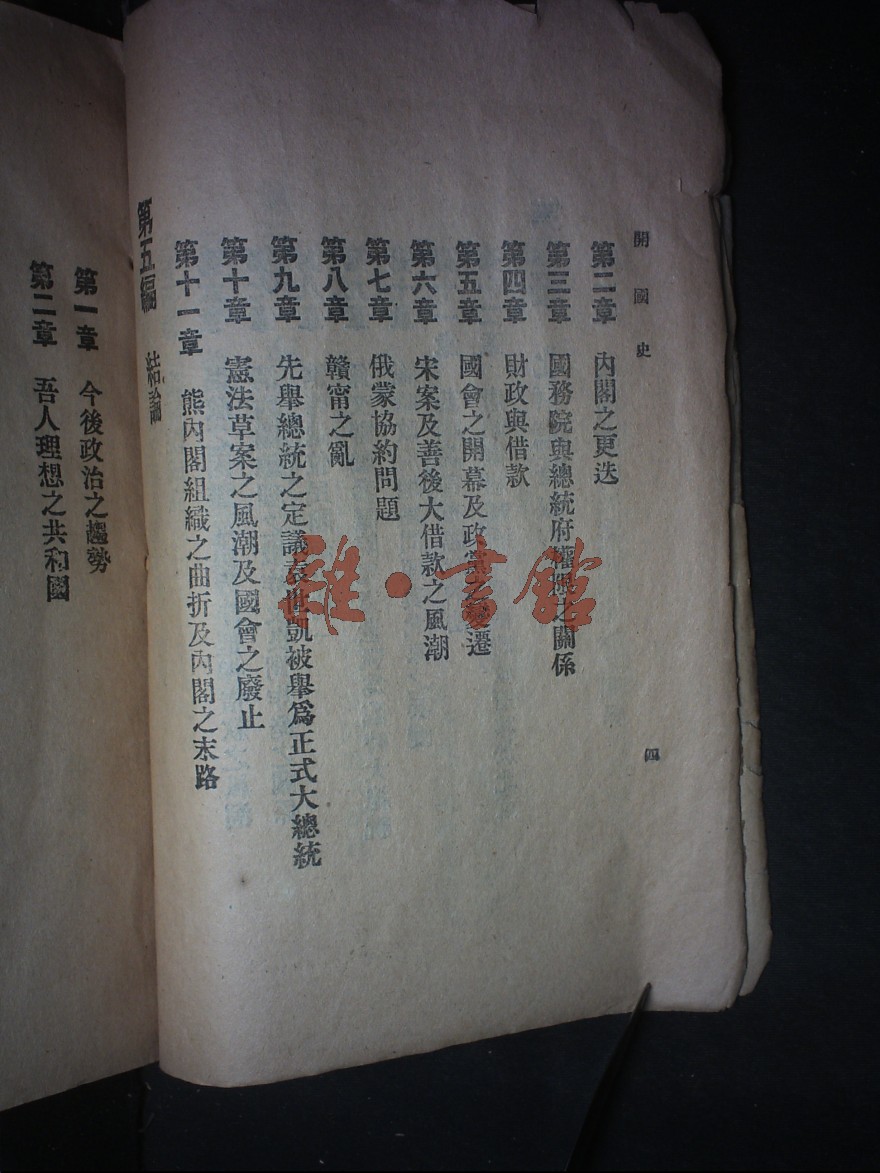 開國史
四
第二章 內閣之更迭
第三章 國務院與總統府權限之關係
第四章 財政與借款
第五章 國會之開幕及政黨之變遷
第六章 宋案及善後大借款之風潮
第七章 俄蒙協約問題
第八章 贛甯之亂
第九章 先舉總統之定議袁世凱被舉爲正式大總統
第十章 憲法草案之風潮及國會之廢止
第十一章 熊內閣組織之曲折及內閣之末路
第五編 結論
第一章 今後政治之趨勢
第二章 吾人理想之共和國
雜·書館